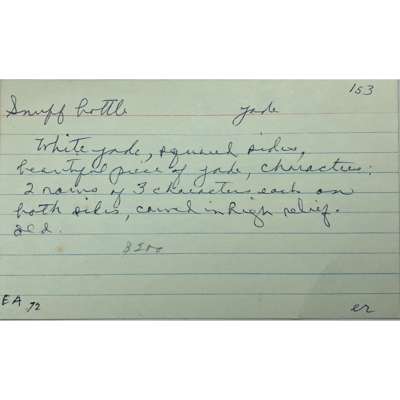 153
Snuff bottle jade
White jade, squared sides,
beautiful piece of jade, characters:
2 rows of 3 characters each on
both sides, carved in high relief.
3200
EA 72 er